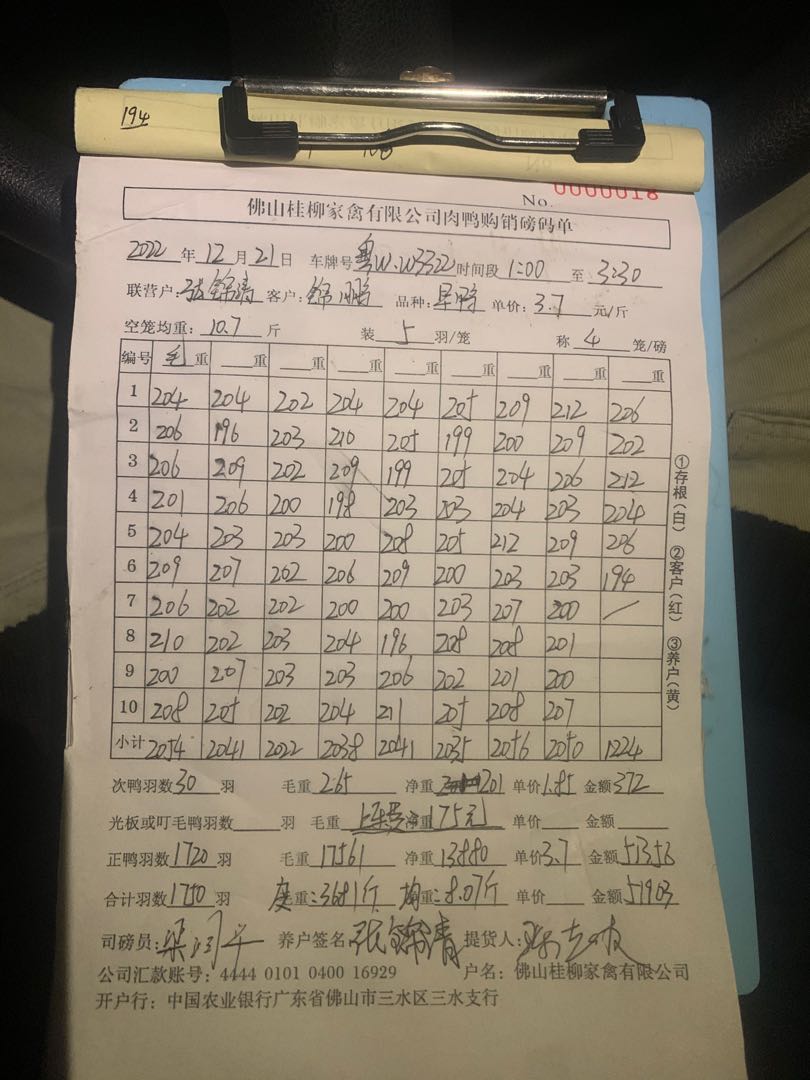 194
No. 0000018
佛山桂柳家禽有限公司肉鸭购销磅码单
2022 年 12 月 21 日 车牌号 粤W·W3322 时间段 1:00 至 3:30
联营户: 张锦清 客户: 锦鹏 品种: 单价: 3.7 元/斤
空笼均重: 10.7 斤 装 5 羽/笼 称 4 笼/磅
编号 毛重 重 重 重 重 重 重 重 重
1 204 204 202 204 204 205 209 212 206
2 206 196 203 210 205 199 200 209 202
3 206 209 202 209 199 205 204 206 212
4 201 206 200 198 203 203 204 203 204
5 204 203 203 200 208 205 212 209 206
6 209 207 202 206 209 200 203 203 194
7 206 202 202 200 200 203 207 200 /
8 210 202 203 204 196 208 208 201
9 200 207 203 203 206 202 201 200
10 208 205 202 204 211 205 208 207
小计 2054 2041 2022 2038 2041 2035 2056 2050 1224
①存根(白) ②客户(红) ③养户(黄)
次鸭羽数 30 羽 毛重 265 净重 201 单价 1.85 金额 372
光板或叮毛鸭羽数 羽 毛重 净重 175元 单价 金额
正鸭羽数 1720 羽 毛重 17561 净重 13880 单价 3.7 金额 51356
合计羽数 1750 羽 皮重: 3681斤 均重: 8.07斤 单价 金额 51903
司磅员: 养户签名 张锦清 提货人:
公司汇款账号: 4444 0101 0400 16929 户名: 佛山桂柳家禽有限公司
开户行: 中国农业银行广东省佛山市三水区三水支行